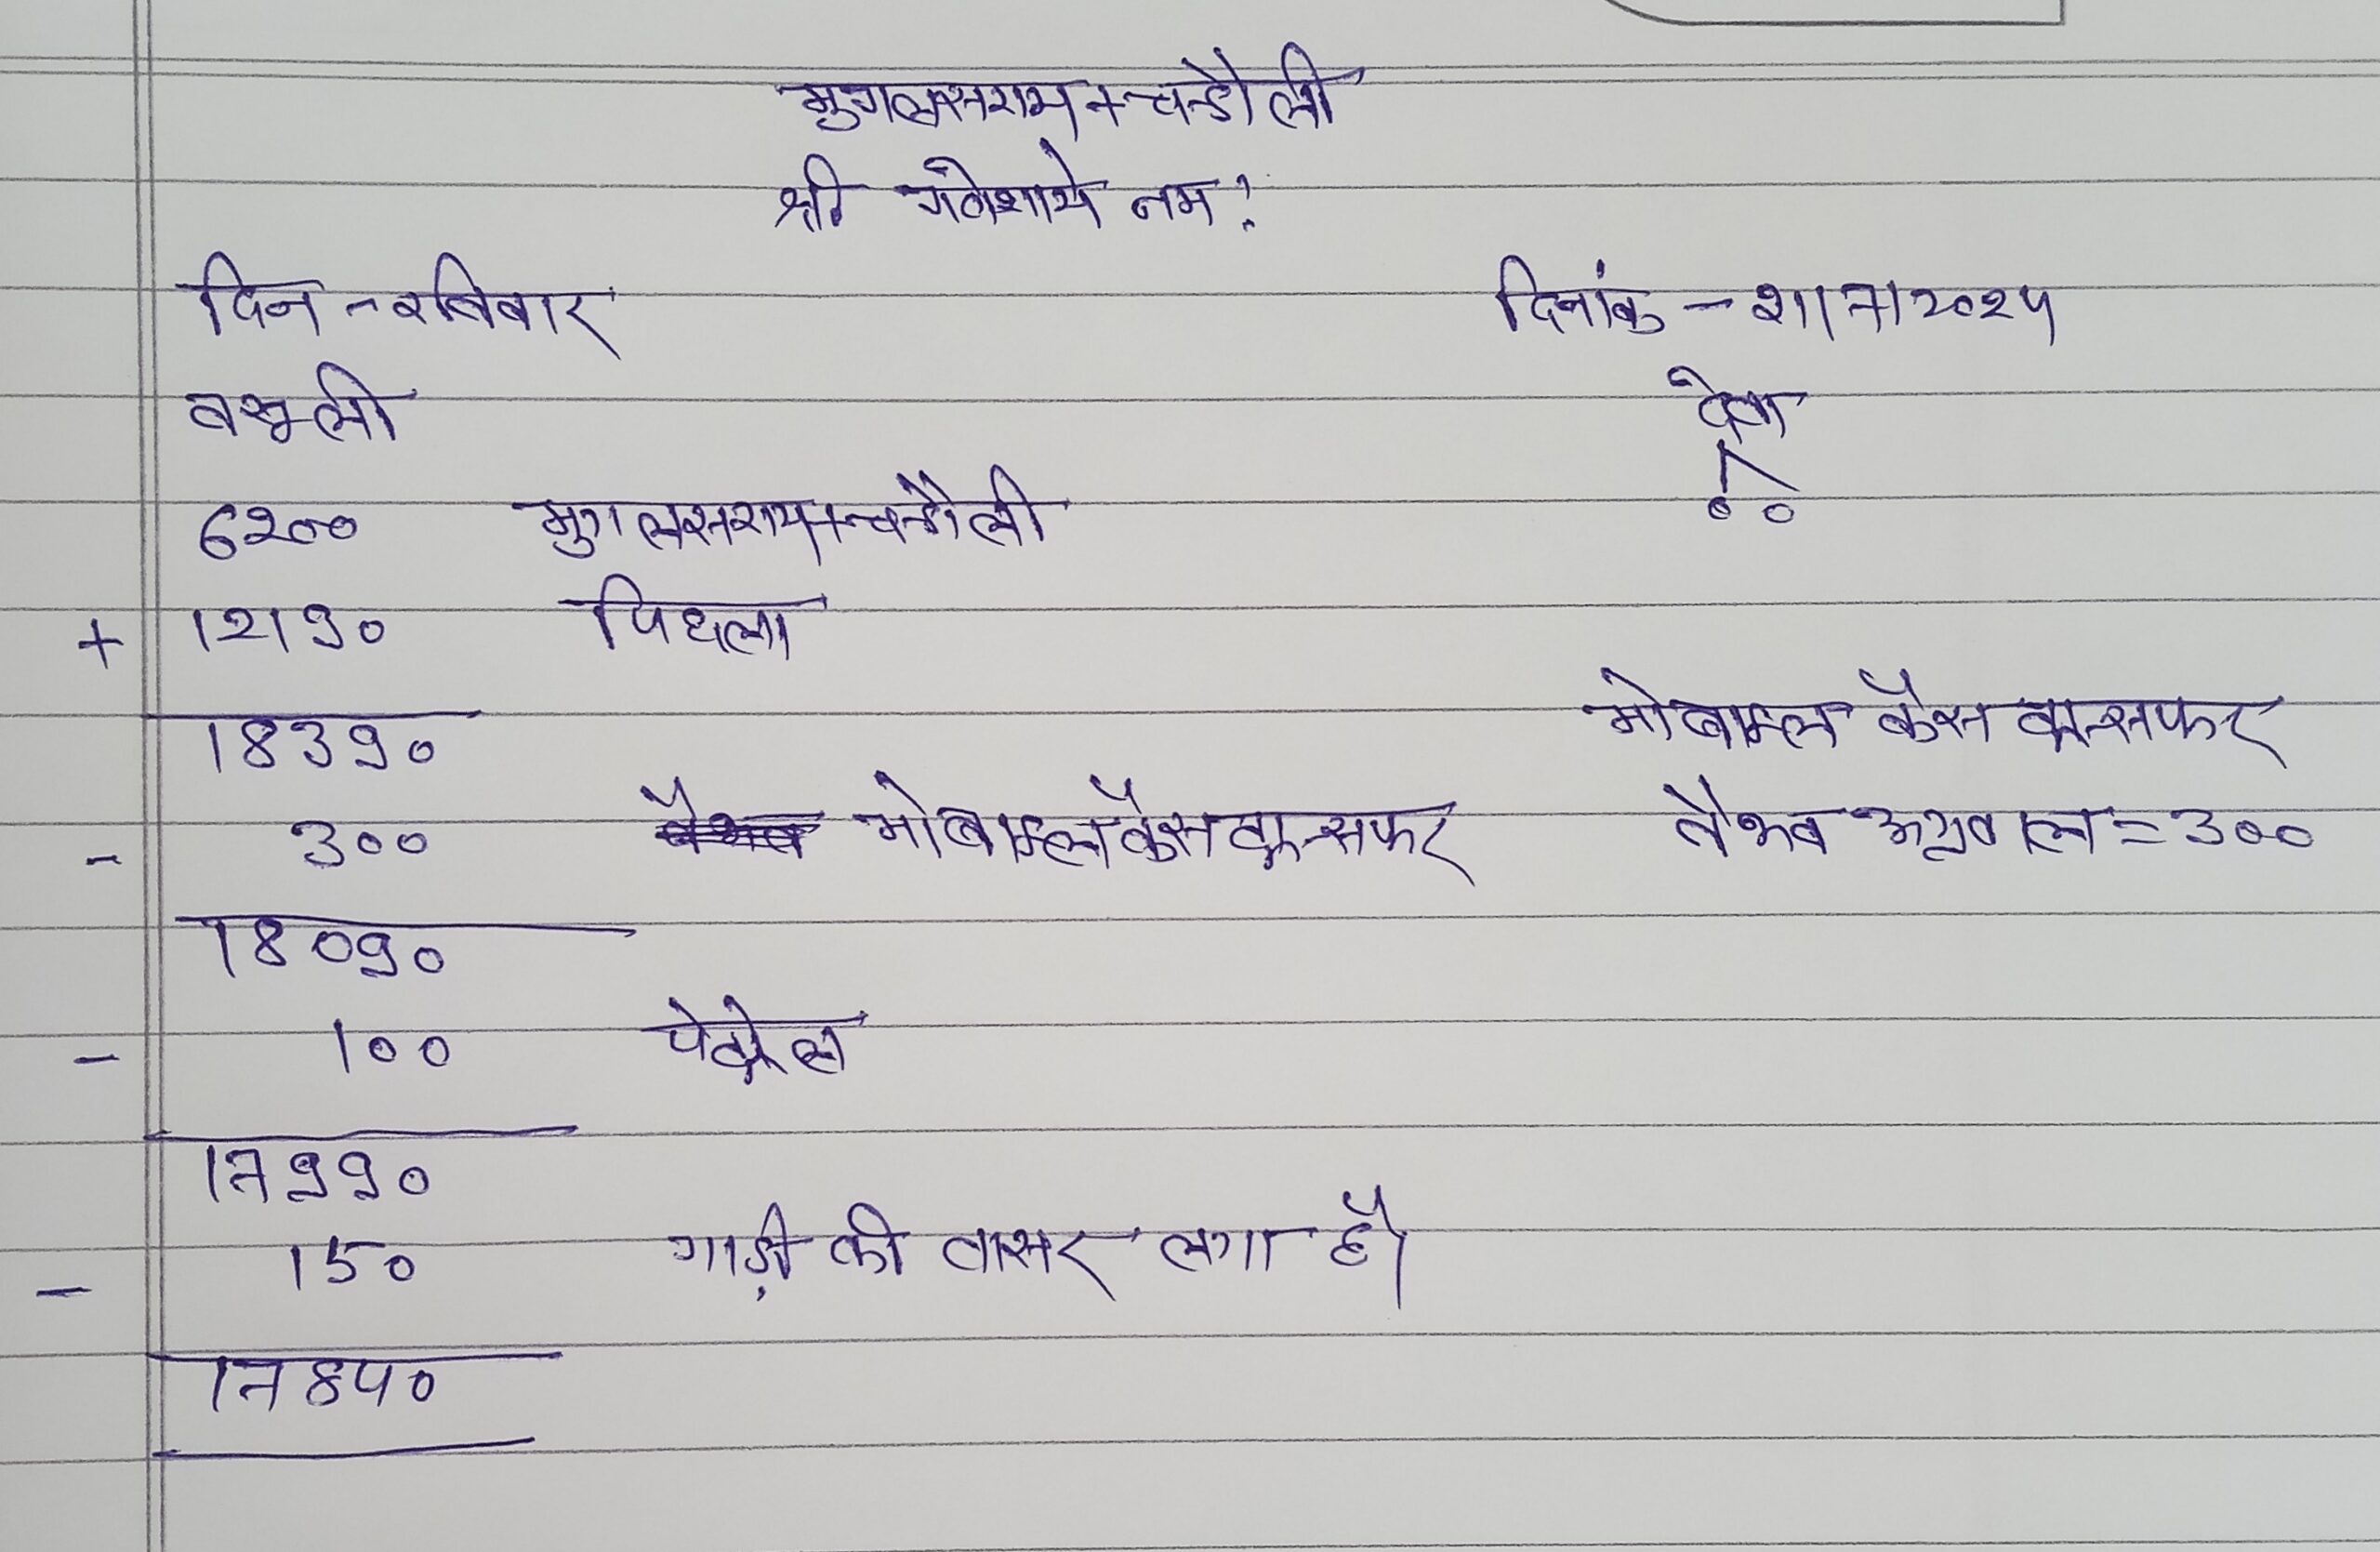 मुगलसराय + चन्डौली
श्री गणेशाये नम:
दिन - रविवार दिनांक - 21/7/2024
वसूली देना
0 0
6200 मुगलसराय + चन्डौली
+ 12190 पिछला
18390 मोबाइल कैस ट्रान्सफर
- 300 मोबाइल कैस ट्रान्सफर वैभव अग्रवाल = 300
18090
- 100 पेट्रोल
17990
- 150 गाड़ी की वासर लगा है।
17840